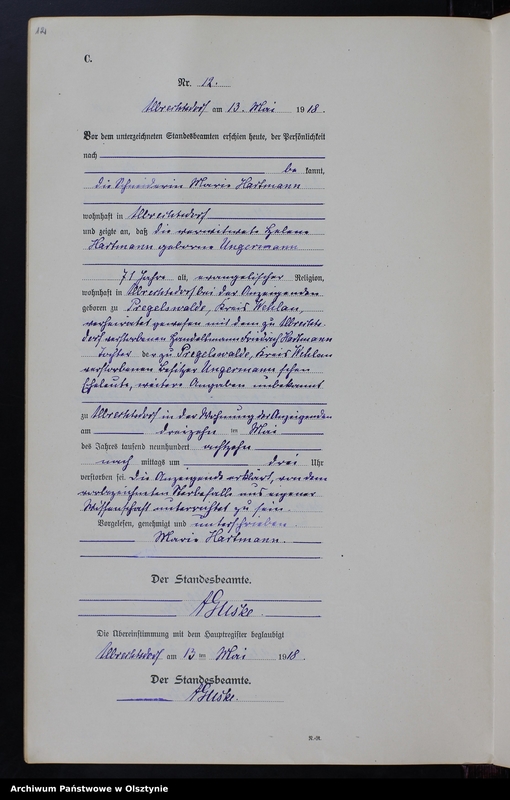 121
C.
Nr. 12.
Albrechtsdorf am 13. Mai 1918.
Vor dem unterzeichneten Standesbeamten erschien heute, der Persönlichkeit
nach
be kannt,
die Schneiderin Marie Hartmann
wohnhaft in Albrechtsdorf
und zeigte an, daß die verwitwete Helene
Hartmann geborene Ungermann
71 Jahre alt, evangelischer Religion,
wohnhaft in Albrechtsdorf bei der Anzeigenden
geboren zu Pregelswalde, Kreis Wehlau,
verheiratet gewesen mit dem zu Albrechts-
dorf verstorbenen Handelsmann Friedrich Hartmann
Tochter der zu Pregelswalde, Kreis Wehlau
verstorbenen Besitzer Ungermann'schen
Eheleute, weitere Angaben unbekannt
zu Albrechtsdorf in der Wohnung der Anzeigenden
am dreizehn ten Mai
des Jahres tausend neunhundert achtzehn
nach mittags um drei Uhr
verstorben sei. Die Anzeigende erklärt, von dem
vorbezeichneten Sterbefalle aus eigener
Wissenschaft unterrichtet zu sein.
Vorgelesen, genehmigt und unterschrieben.
Marie Hartmann.
Der Standesbeamte.
AGuske.
Die Übereinstimmung mit dem Hauptregister beglaubigt
Albrechtsdorf am 13 ten Mai 1918.
Der Standesbeamte.
AGuske.
Archiwum Państwowe w Olsztynie